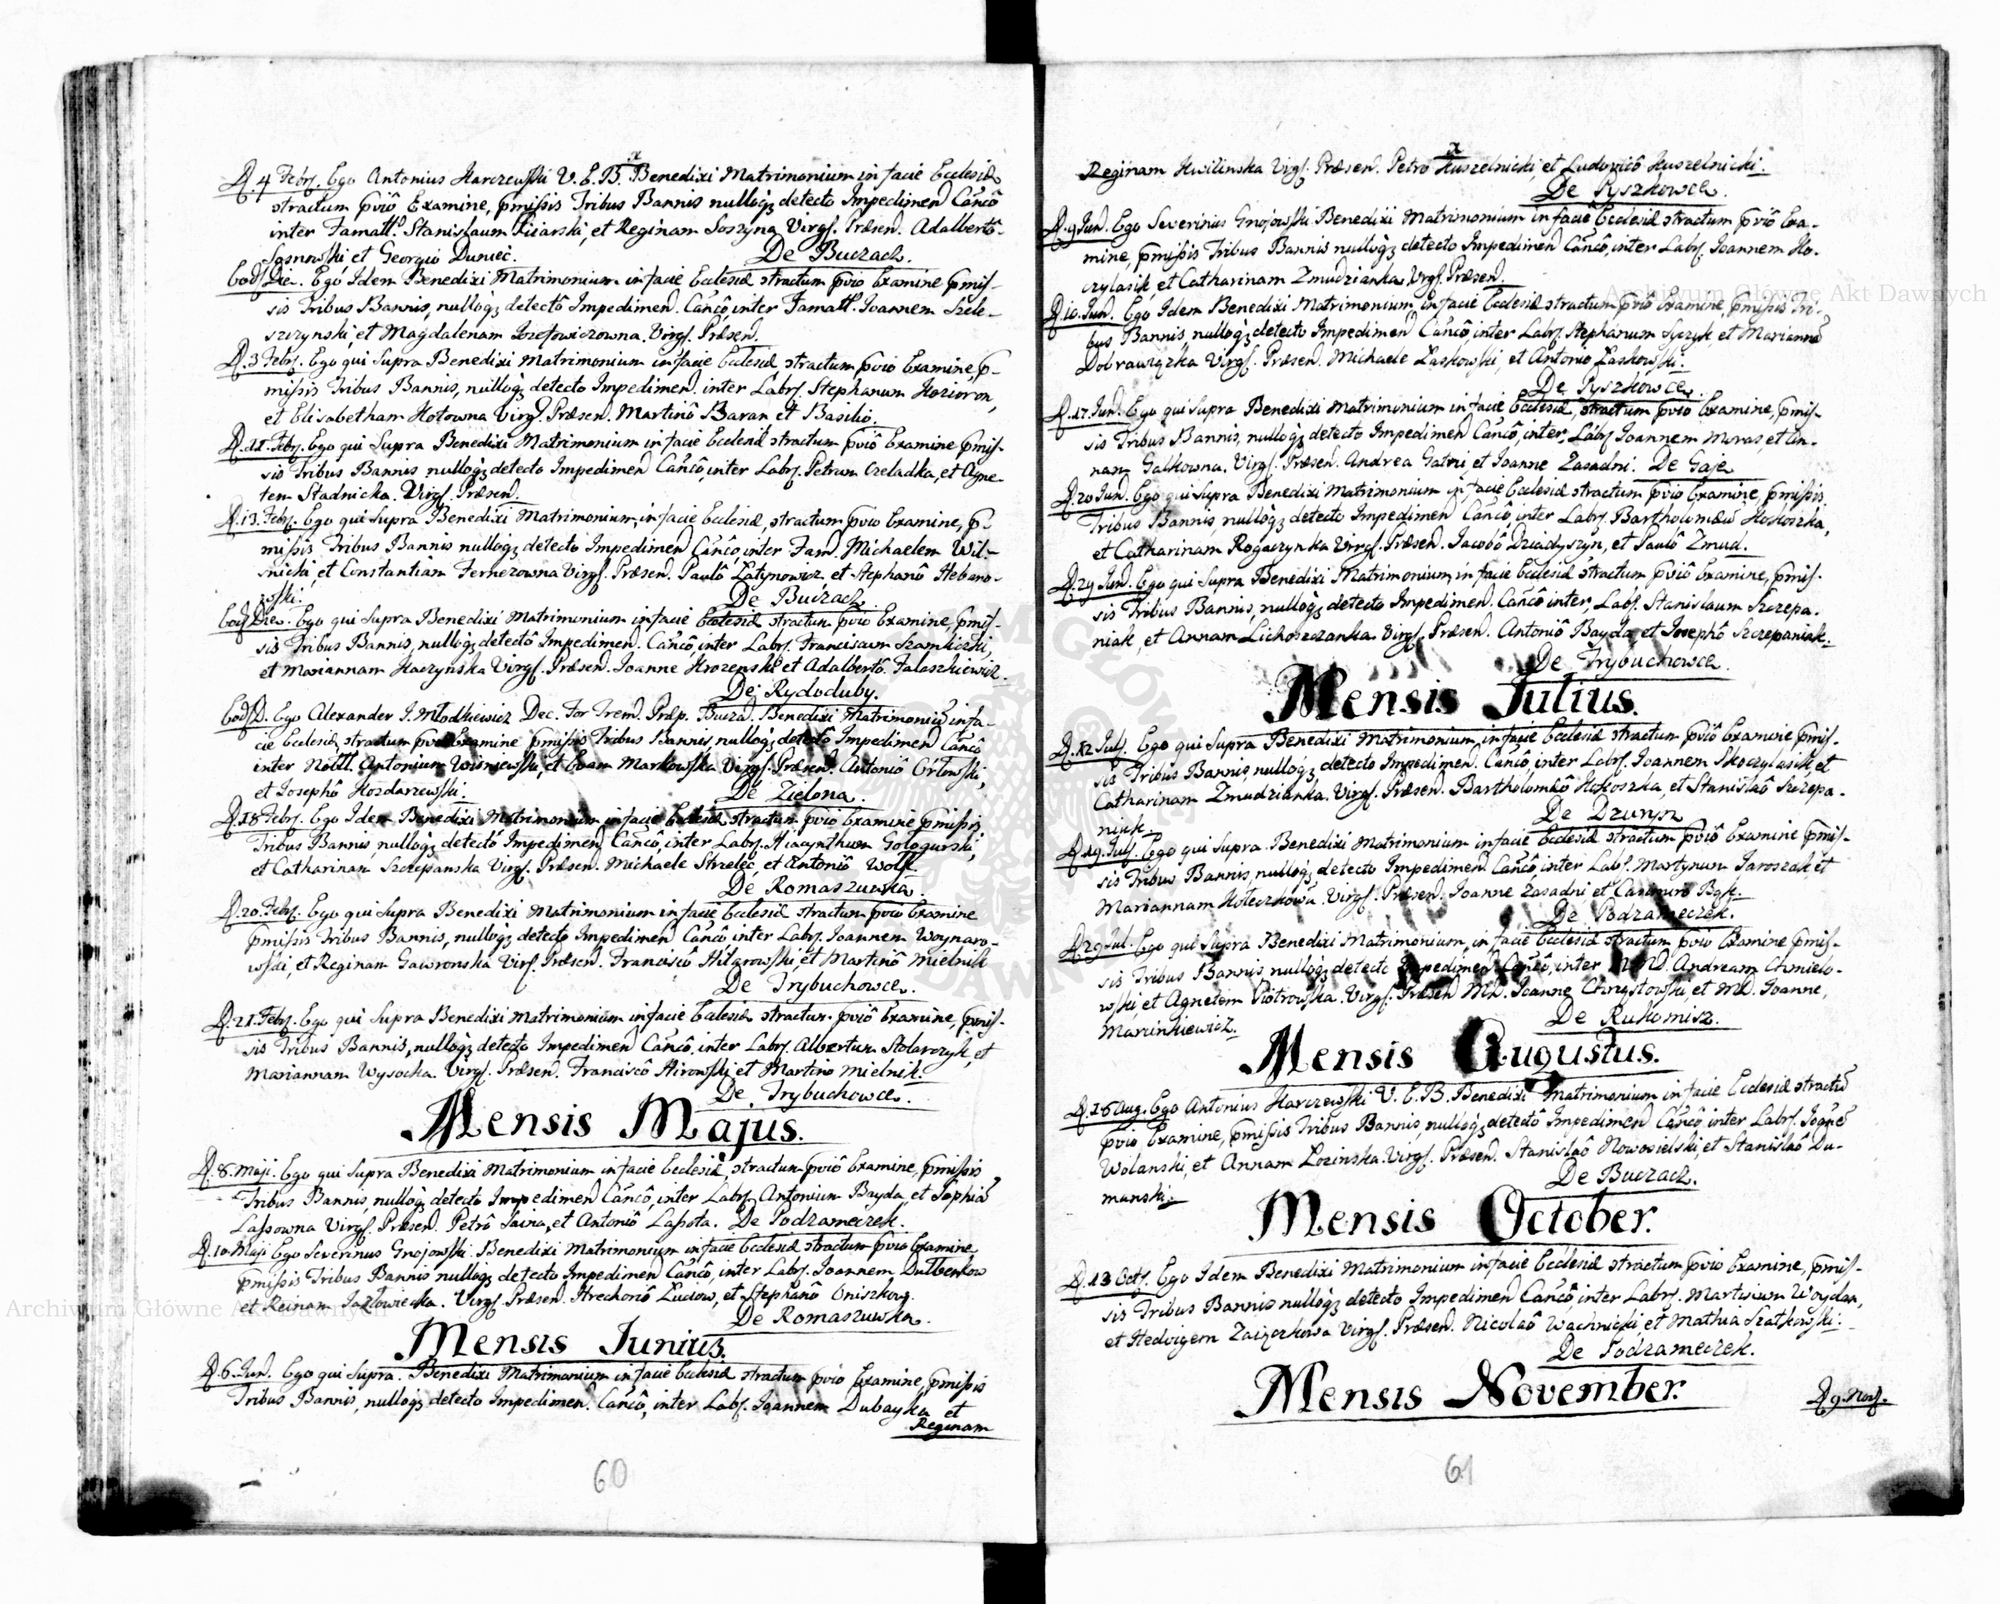 D. 4 Febr. Ego Antonius Harczewski V. E. B. Benedixi Matrimonium in facie Ecclesiæ
stractum pvió Examine, pmissis Tribus Bannis nulloqz detecto Impedimen Cancô
inter Famatt. Stanislaum Pisarski, et Reginam Soszyna Virg. Præsen. Adalbertô
Sosnowski et Georgio Duniec. De Buczacz.
Eod. Die. Ego Idem Benedixi Matrimonium in facie Ecclesiæ stractum pvio Examine pmis-
sis Tribus Bannis, nulloqz detectô Impedimen. Cancô, inter Famatt. Joannem Szele-
szczynski et Magdalenam Jozefowiczowna. Virg. Præsen.
D. 3 Febr. Ego qui Supra Benedixi Matrimonium in facie Ecclesiæ, stractum pvio Examine, p-
missis Tribus Bannis, nulloqz detecto Impedimen. inter Labr. Stephanum Kozioron,
et Elisabetham Kotowna Virg. Præsen. Martinô Baran et Basilio.
D. 11. Febr. Ego qui Supra Benedixi Matrimonium in facie Ecclesiæ stractum pviô Examine pmis-
sis Tribus Bannis nulloqz detecto Impedimen Cancô, inter Labr. Petrum Czeladka, et Agne-
tem Stadnicka. Virg. Præsen.
D. 13. Febr. Ego qui Supra Benedixi Matrimonium, in facie Ecclesiæ, stractum pvio Examine, p-
missis Tribus Bannis nulloqz detecto Impedimen Cancô, inter Fam. Michaelem Wil-
snicki, et Constantiam Fernezowna Virg. Præsen. Paulô Łatynowicz et Stephanô Hebano-
wski. De Buczacz.
Eod. Die. Ego qui Supra Benedixi Matrimonium in facie Ecclesiæ stractum pvio Examine, pmis-
sis Tribus Bannis, nulloqz detectô Impedimen. Cancô, inter Labr. Franciscum Szamliczki,
et Mariannam Kaczynska Virg. Præsen. Joanne Krozenski et Adalbertô Falaszkiewicz.
De Rydoduby.
Eod. D. Ego Alexander J. Młodkiewicz Dec. For Trem. Præp. Bucza. Benedixi Matrimoniũ in fa-
cie Ecclesiæ, stractum pvio Examine pmissis Tribus Bannis, nulloqz detectô Impedimen Cancô
inter Nobill. Antonium Wisniewski, et Evam Markowska Virg. Præsen. Antoniô Orłowski,
et Josephô Kozdarzewski. De Zielona.
D. 18 Febr. Ego Idem Benedixi Matrimonium in facie Ecclesiæ stractum pvio Examine pmissis
Tribus Bannis, nulloqz detectô Impedimen Cancô, inter Labr. Hiacynthum Gologurski,
et Catharinam Szczepanska Virg. Præsen. Michaele Strzelec, et Antoniô Wolk.
De Romaszuwka.
D. 20. Febr. Ego qui Supra Benedixi Matrimonium in facie Ecclesiæ stractum pvio Examine
pmissis Tribus Bannis, nulloqz detecto Impedimen Cancô, inter Labr. Joannem Woynaro-
wski, et Reginam Gawronska Virg. Præsen. Franciscô Hilarowski, et Martinô Mielnik
De Trybuchowce.
D. 21. Febr. Ego qui Supra Benedixi Matrimonium in facie Ecclesiæ stractum pviô Examine, pmis-
sis Tribus Bannis, nulloqz detecto Impedimen Cancô, inter Labr. Albertum Stolarczyk, et
Mariannam Wysocka. Virg. Præsen. Franciscô Hirowski et Martino Mielnik.
De Trybuchowce.
Mensis Majus.
D. 8. Maji. Ego qui Supra Benedixi Matrimonium in facie Ecclesiæ, stractum pviô Examine, pmissis
Tribus Bannis, nulloqz detecto Impedimen Cancô, inter Labr. Antonium Bayda, et Sophiã
Lassowna Virg. Præsen. Petrô Jaina, et Antoniô Lassota. De Podzameczek.
D. 10. Maji Ego Severinus Gnojowski Benedixi Matrimonium in facie Ecclesiæ stractum pvio Examine
pmissis Tribus Bannis nulloqz detecto Impedimen Cancô, inter Labr. Joannem Dulbenkow
et Reinam Jazłowiecka. Virg. Præsen. Hrechoriô Łudow, et Stephanô Oniszkow.
De Romaszuwka.
Mensis Junius.
D. 6. Jun. Ego qui Supra. Benedixi Matrimonium in facie Ecclesiæ stractum pvio Examine, pmissis
Tribus Bannis, nulloqz detecto Impedimen. Cancô, inter Labr. Joannem Dubayka et
Reginam
60
Reginam Kwilinska Virg. Præsen. Petrô Kuszelnicki, et Ludovicô Kuszelnicki.
De Pyszkowce.
D. 9 Jun. Ego Severinus Gnojowski Benedixi Matrimonium in facie Ecclesiæ stractum pviô Exa-
mine, pmissis Tribus Bannis nulloqz detecto Impedimen Cancô, inter Labr. Joannem Ko-
czylasik, et Catharinam Zmudzianka. Virg. Præsen.
D. 10. Jun. Ego Idem Benedixi Matrimonium, in facie Ecclesiæ stractum pviô Examine, pmissis Tri-
bus Bannis, nulloqz detecto Impedimen Cancô, inter Labr. Stephanum Syczyk et Mariannã
Dobrawiązka Virg. Præsen. Michaele Łaskowski, et Antonio Łaskowski.
De Pyszkowce.
D. 17. Jun. Ego qui Supra Benedixi Matrimonium in facie Ecclesiæ, stractum pvio Examine, pmis-
sis Tribus Bannis, nulloqz detecto Impedimen Cancô, inter, Labr. Joannem Moras, et An-
nam Galkowna. Virg. Præsen. Andrea Gatni et Joanne Zasadni. De Gaje
D. 20 Jun. Ego qui Supra Benedixi Matrimonium in facie Ecclesiæ stractum pvio Examine, pmissis
Tribus Bannis, nulloqz detecto Impedimen Cancô, inter Labr. Bartholomæũ Kokoszka,
et Catharinam Rogaczynka Virg. Præsen. Jacobô Dziadyszyn, et Paulô Zmud.
D. 29 Jun. Ego qui Supra Benedixi Matrimonium, in facie Ecclesiæ stractum pviô Examine, pmis-
sis Tribus Bannis, nulloqz detecto Impedimen. Cancô inter, Labr. Stanislaum Szczepa-
niak, et Annam Lichoszczanka Virg. Præsen. Antoniô Bayda, et Josephô Szczepaniak.
De Trybuchowce.
Mensis Julius.
D. 12. Jul. Ego qui Supra Benedixi Matrimonium, in facie Ecclesiæ stractum pviô Examine pmis-
sis Tribus Bannis, nulloqz detecto Impedimen. Cancô, inter Labr. Joannem Skoczylasik, et
Catharinam Zmudzianka. Virg. Præsen. Bartholomêô Kokoszka, et Stanislaô Szczepa-
niak. De Dzuryn
D. 19. Jul. Ego qui Supra. Benedixi Matrimonium in facie Ecclesiæ stractum pviô Examine pmis-
sis Tribus Bannis, nulloqz detecto Impedimen Cancô, inter Labr. Martynum Jaroszak et
Mariannam Koleczkowa Virg. Præsen. Joanne Zasadni et Casimirô Bąk.
De Podzameczek.
D. 29 Jul. Ego qui Supra Benedixi Matrimonium, in facie Ecclesiæ stractum pvio Examine pmis-
sis Tribus Bannis nulloqz detecto Impedimen Cancô, inter MD. Andream Chmielo-
wski, et Agnetem Piotrowska. Virg. Præsen MD. Joanne Chrystowski, et MD. Joanne,
Marcinkiewicz. De Rukomisz.
Mensis Augustus.
D. 18 Aug. Ego Antonius Harczewski V. E. B. Benedixi Matrimonium in facie Ecclesiæ stractũ
pvio Examine, pmissis Tribus Bannis, nulloqz detectô Impedimen Cancô, inter Labr. Joannẽ
Wolanski, et Annam Lozinska. Virg. Præsen. Stanislaô Nowosielski, et Stanislaô Du-
manski. De Buczacz.
Mensis October.
D. 13 Oct. Ego Idem Benedixi Matrimonium in facie Ecclesiæ stractum pvio Examine, pmis-
sis Tribus Bannis nulloqz detecto Impedimen Cancô inter Labr. Martinum Woydan,
et Hedvigem Zaiączkowa Virg. Præsen. Nicolaô Wachnicki et Mathia Szatkowski.
De Podzameczek.
Mensis November.
D. 9. Nov.
61
Archiwum Główne Akt Dawnych
Archiwum Główne Akt Dawnych